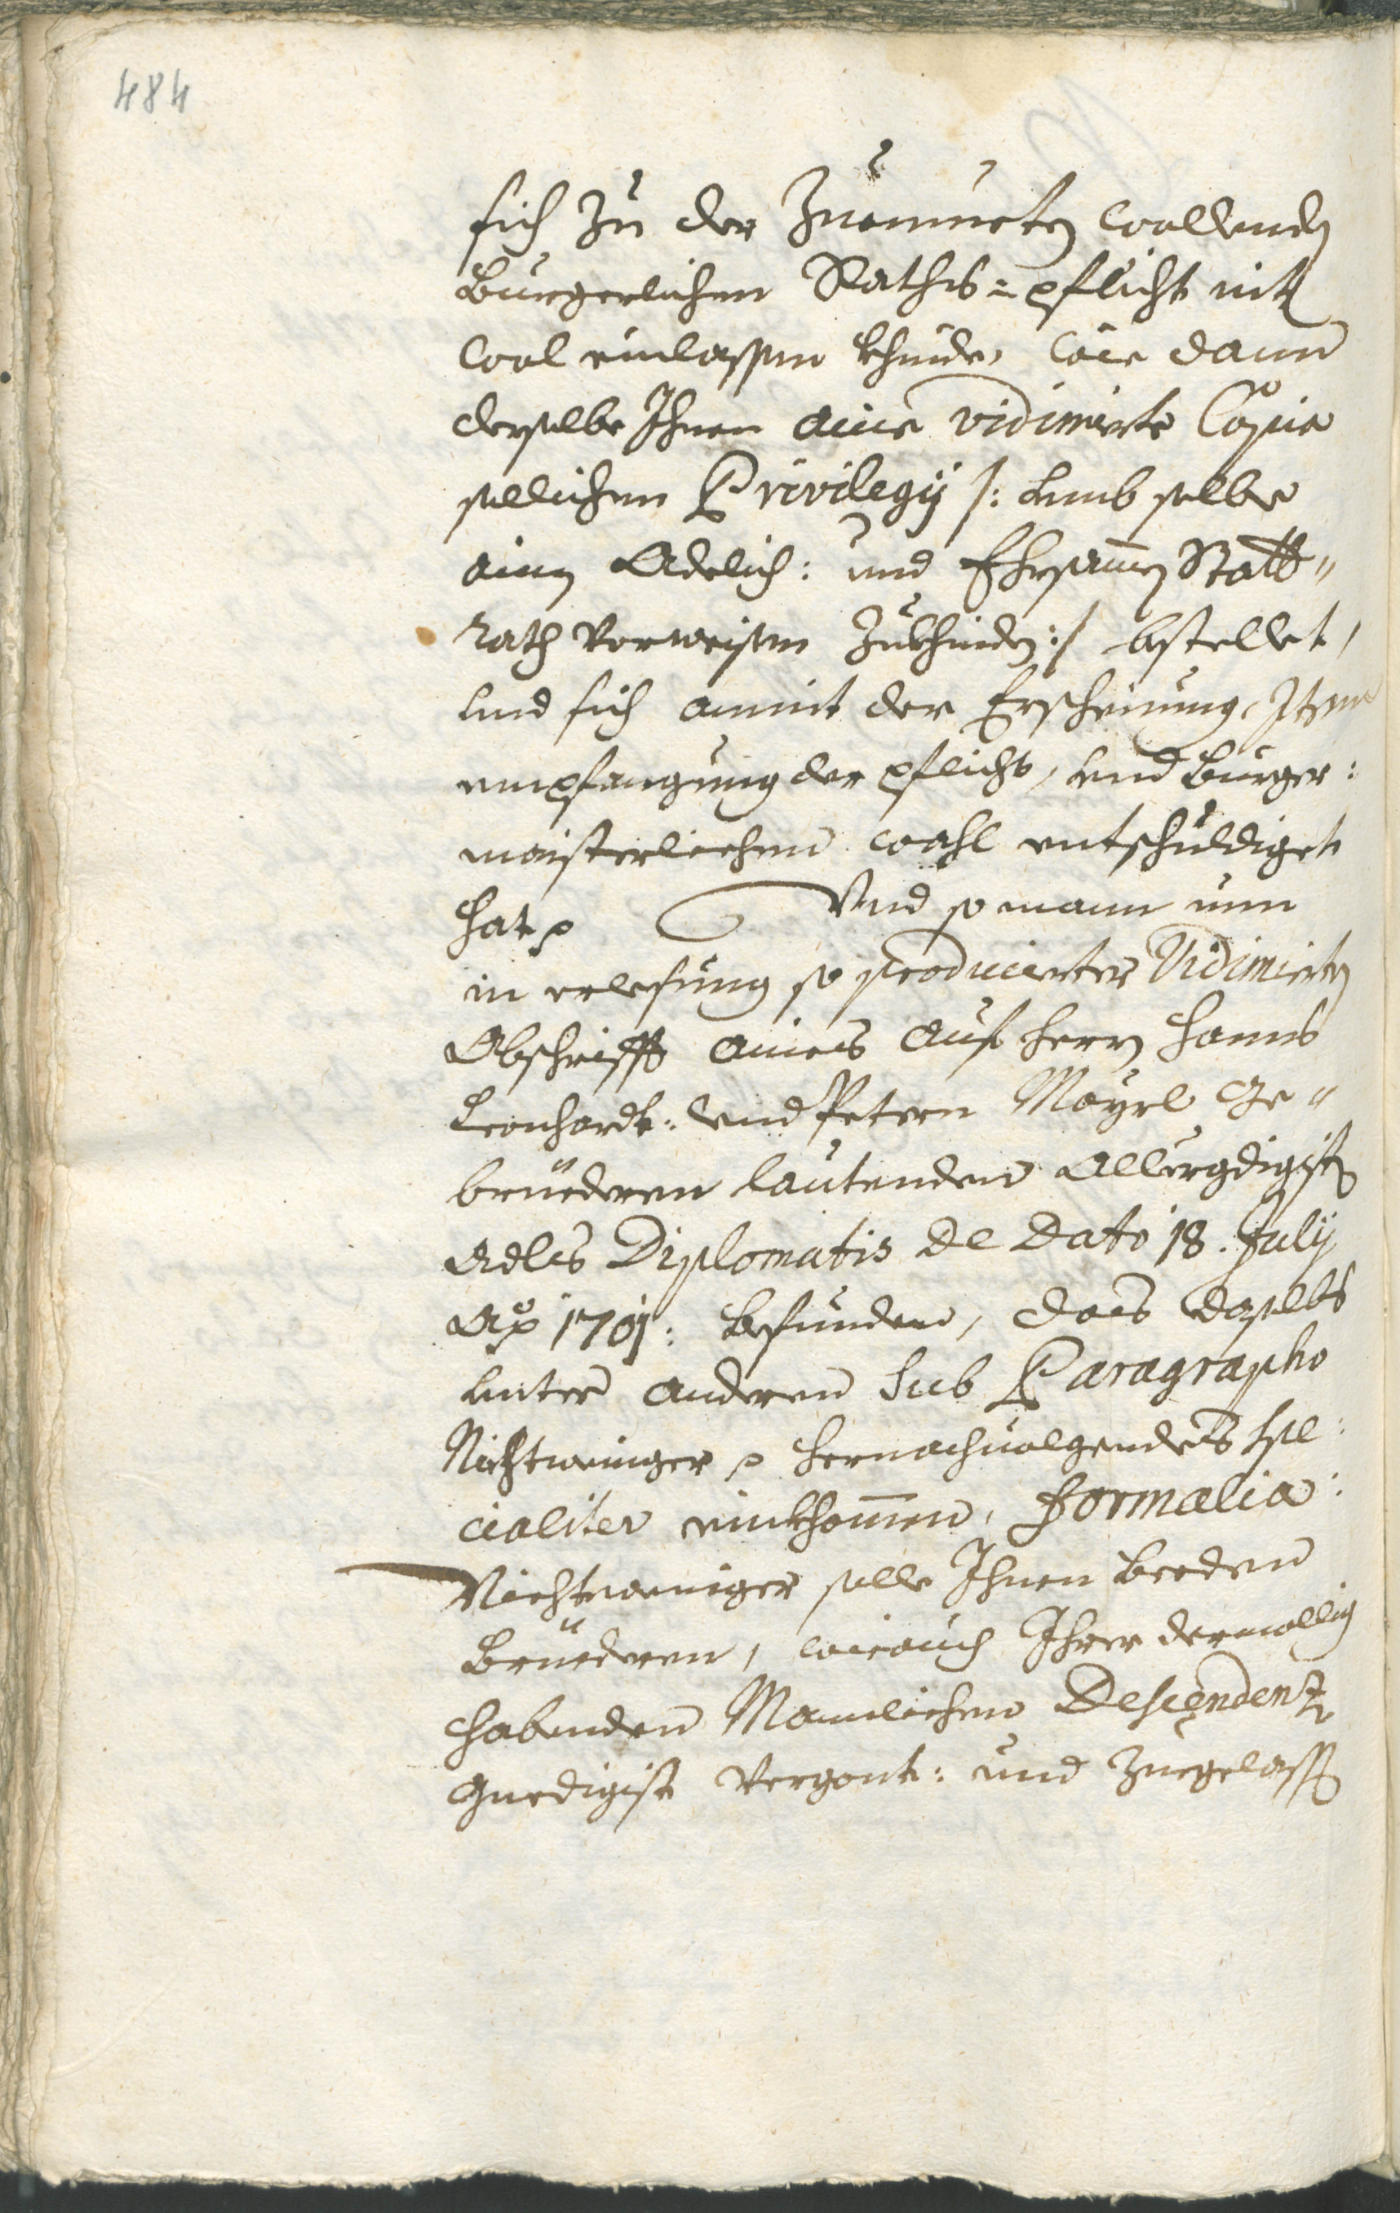 484
sich zu der Zuemueten wollenden
Burgerlichen Raths=pflicht nit
wol einlassen khinde, wie dann
derselbe Ihnen aine vidimierte Copia
sollichen Privilegij /: umb selbe
ainen Adelich: und Ehrsamen Statt"
rath vorweisen zukhinden :/ bestellet,
und sich amit der Erscheinung, Item
empfangung der pflicht, und Burger:
maisterlichen wahl entschuldiget
hat p Und so mann nun
in erlesung so producierter Vidimierten
Abschrifft aines auf Herrn Hanns
Leonhardt: und Petern Mayrl Ge"
brüederen lautenden Allergdigisten
Adls Diplomatis De Dato 18. July
Ao 1701: befunden, das daselbs
unter anderen sub Paragrapho
Nichtweniger p hernachuolgendes spe:
cialiter einkhommen, formalia:
Nichtweniger solle Ihnen beeden
Brüederen, wieauch Ihrer dermallig
habenden Manlichen Descendenz
gnedigist vergont: und zuegelassen